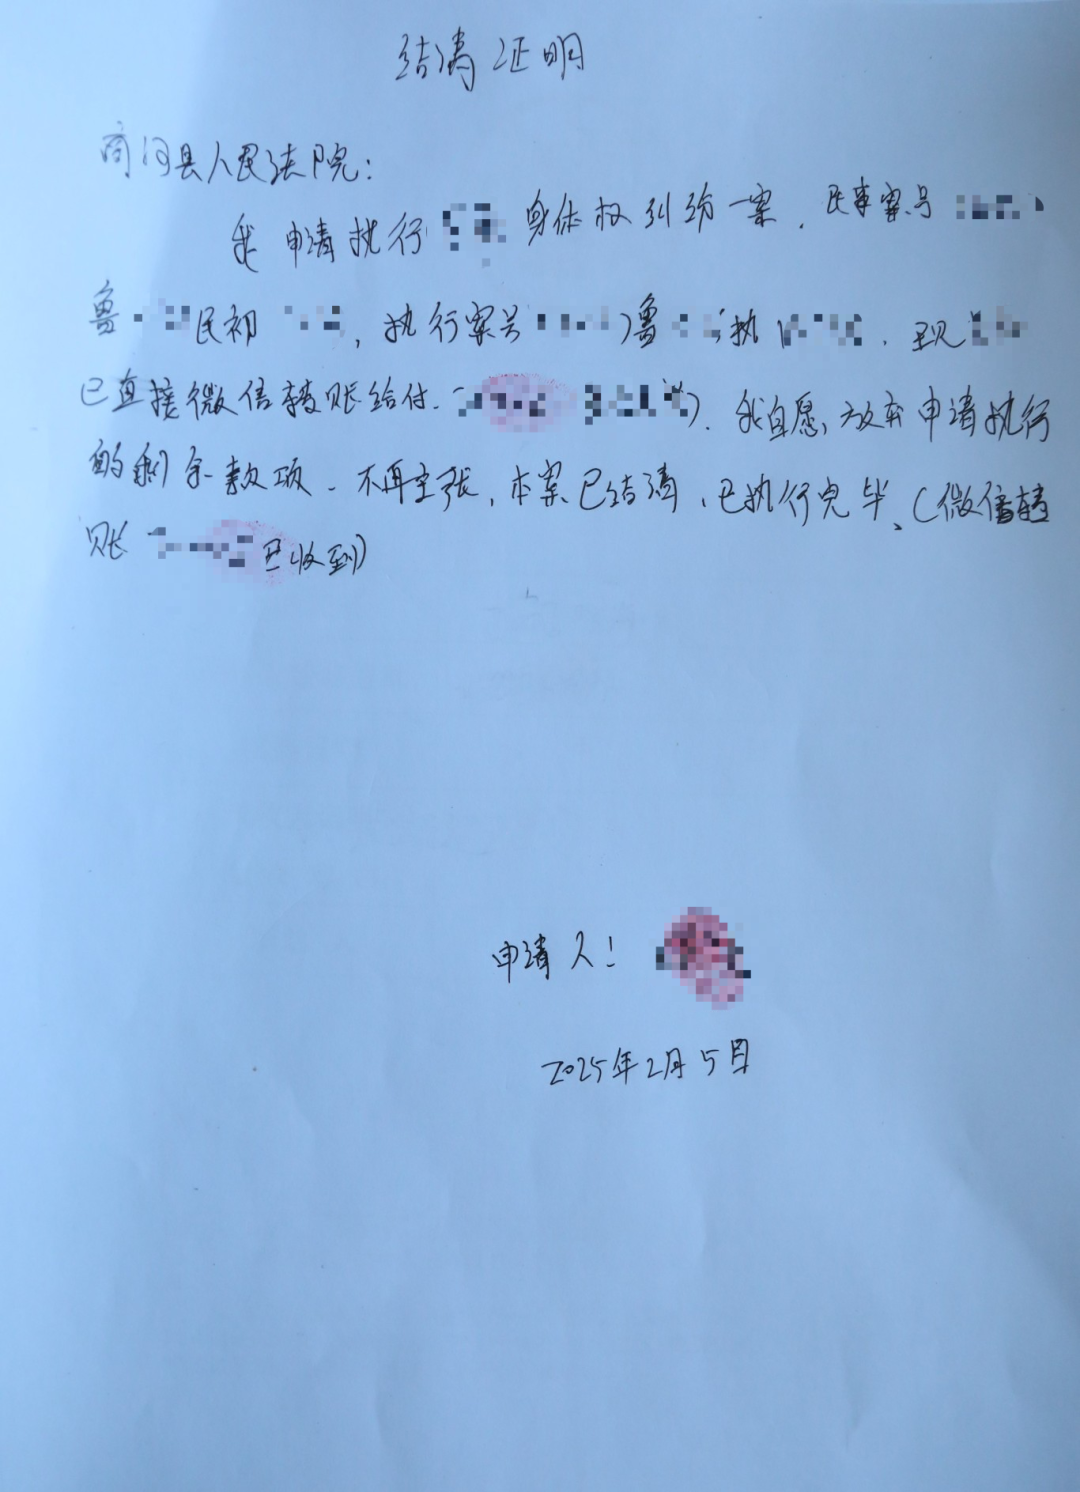 结清证明
商河县人民法院：
我申请执行 身体权纠纷一案，民事案号
鲁 民初 ，执行案号 ）鲁 执 ，现
已直接微信转账给付 ），我自愿放弃申请执行
的剩余款项，不再主张，本案已结清，已执行完毕、（微信转
账 已收到）
申请人：
2025年2月5日